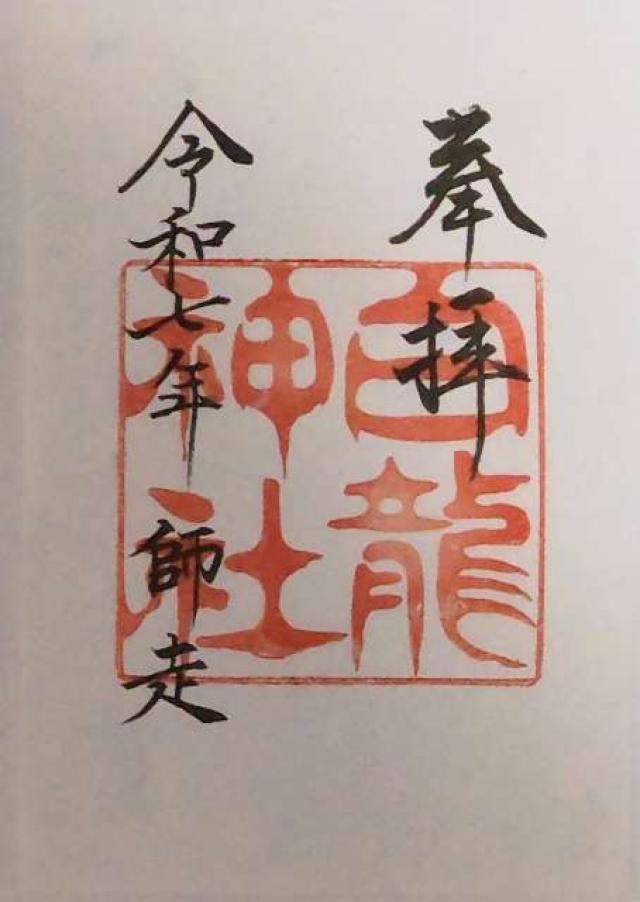 奉拝
白龍
神社
令和七年 師走